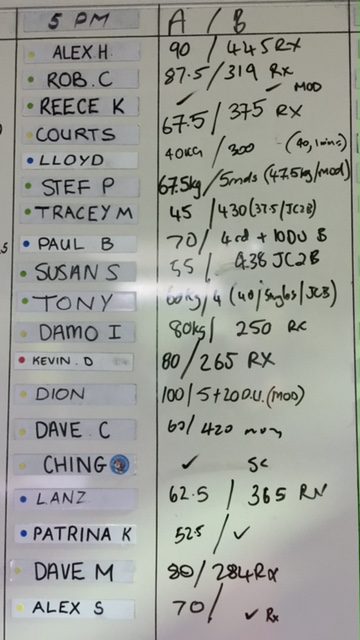 5 PM A / B
ALEX H. 90 / 445 RX
ROB. C 87.5 / 319 Rx
REECE K ✓ / ✓ MOD
COURTS 67.5 / 375 RX
LLOYD 40kg / 300
STEF P 67.5kg / 5rnds (47.5kg/mod)
TRACEY M 45 / 430 (37.5/JC2B)
PAUL B 70 / 4rd + 10DU B
SUSAN S 55 / 438 JC2B
TONY 60kg / 4 (40/singles/JCB)
DAMO I 80kg / 250 RX
KEVIN. D 80 / 265 RX
DION 100 / 5+20D.U. (MOD)
DAVE C 60 / 420
CHING ✓ Sc
LANZ 62.5 / 365 RX
PATRINA K 52.5 / ✓
DAVE M 80 / 284 RX
ALEX S 70 / ✓ Rx